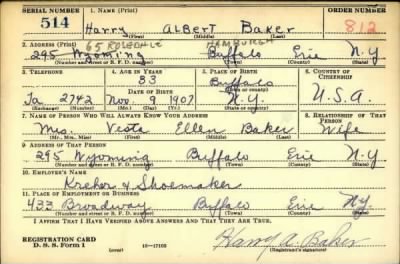 SERIAL NUMBER 1. NAME (Print) ORDER NUMBER
514 Harry ALBERT Baker 812
(First) (Middle) (Last)
65 ROSEDALE HAMBURGH
2. ADDRESS (Print)
295 Wyoming Buffalo Erie N.Y
(Number and street or R. F. D. number) (Town) (County) (State)
3. TELEPHONE 4. AGE IN YEARS 5. PLACE OF BIRTH 6. COUNTRY OF CITIZENSHIP
33 Buffalo
DATE OF BIRTH (Town or county)
Ta 2742 Nov. 9 1907 N.Y. U.S.A.
(Exchange) (Number) (Mo.) (Day) (Yr.) (State or country)
7. NAME OF PERSON WHO WILL ALWAYS KNOW YOUR ADDRESS 8. RELATIONSHIP OF THAT PERSON
Mrs. Vesta Ellen Baker Wife
(Mr., Mrs., Miss) (First) (Middle) (Last)
9. ADDRESS OF THAT PERSON
295 Wyoming Buffalo Erie N.Y
(Number and street or R. F. D. number) (Town) (County) (State)
10. EMPLOYER'S NAME
Kreher & Shoemaker
11. PLACE OF EMPLOYMENT OR BUSINESS
433 Broadway Buffalo Erie N.Y.
(Number and street or R. F. D. number) (Town) (County) (State)
I AFFIRM THAT I HAVE VERIFIED ABOVE ANSWERS AND THAT THEY ARE TRUE.
REGISTRATION CARD Harry A. Baker
D. S. S. Form 1 (over) 16—17105 (Registrant's signature)